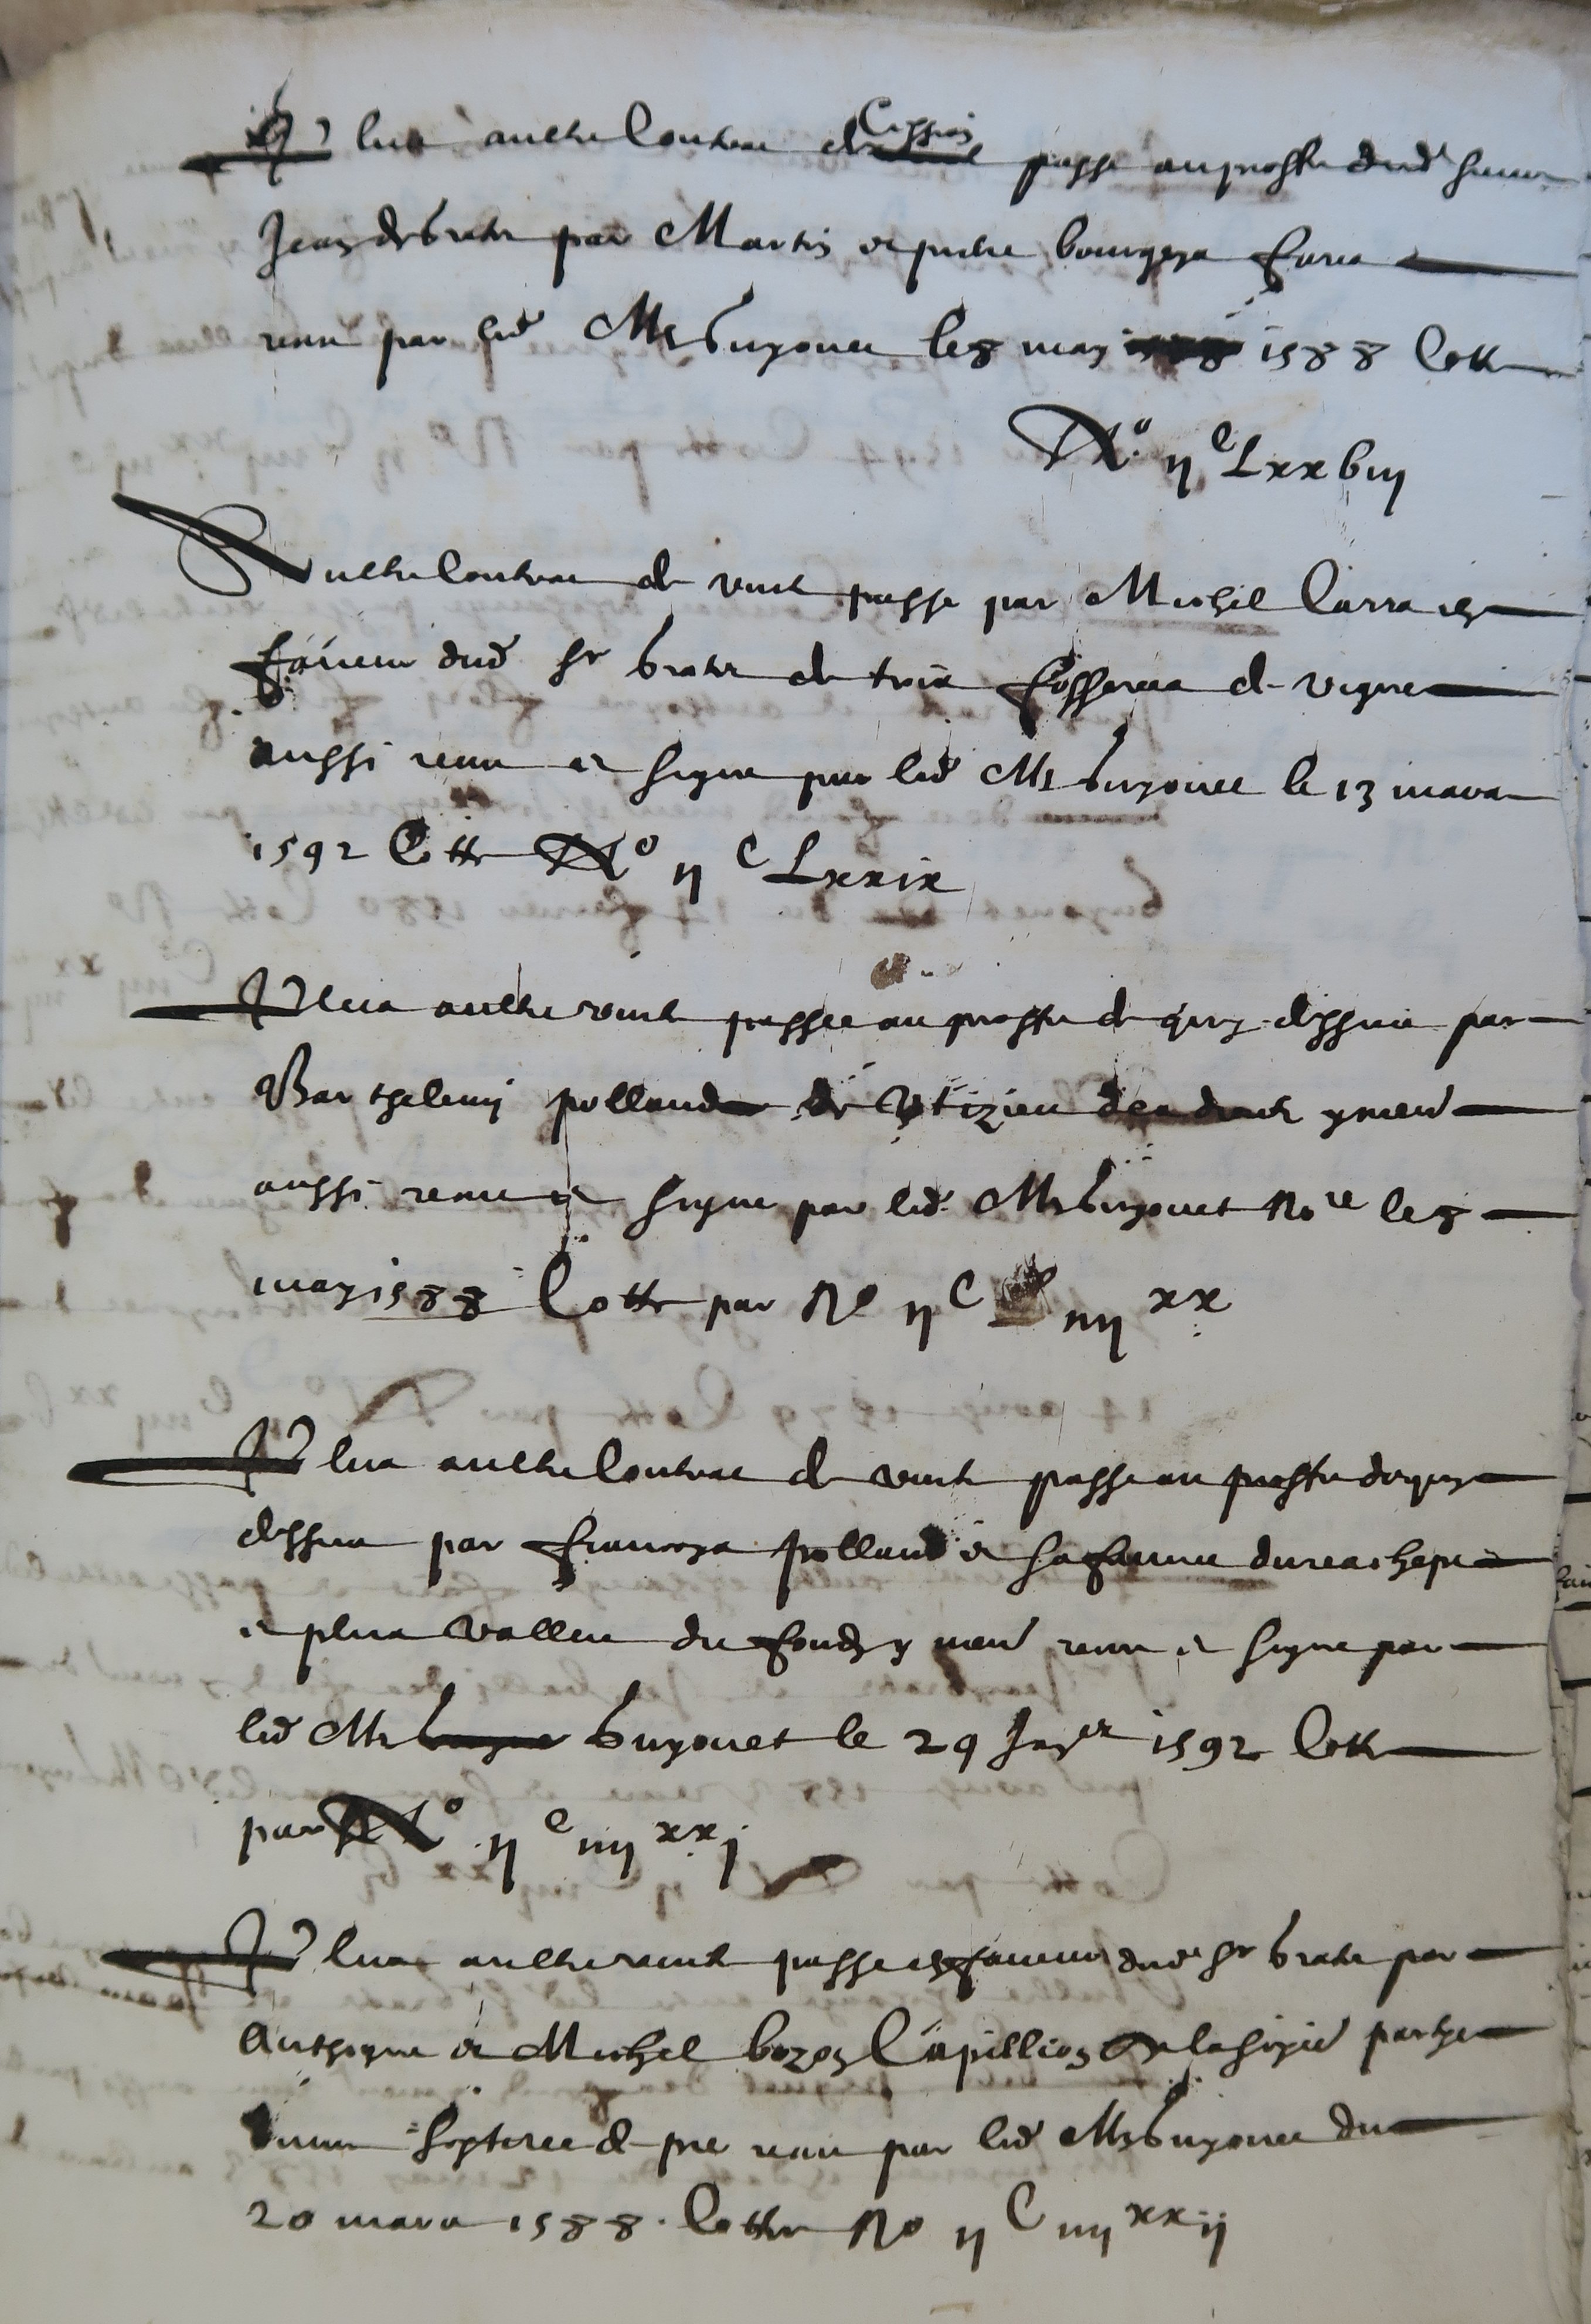 Plus aultre contrac de cession passe au proffit dud sieur
Jean de brate par Martin et pierre bourgeys freres
receu par led Me buyonet le 8 may 1588 cotte
No ij C Lxxviij
Aultre contrac de vente passe par Michel Carra en
faveur dud sr brate de trois fosserees de vigne
aussi receu et signe par led Me buyonet le 13 mars
1592 Cotte No ij C Lxxix
Plus aultre vente passee au proffit de quy dessus par
Barthelemy polland de des droitz y men
aussi receu et signe par led Me buyonet Nore le 8
may 1588 Cotte par No ij C iiij xx
Plus aultre contrac de vente passe au proffit de quy
dessus par francoys polland et sa femme du reachept
et plus valleu du fondz y men receu et signe par
led Me buyonet le 29 Janer 1592 cotte
par No ij C iiij xx j
Plus aultre vente passe en faveur dud sr brate par
Anthoyne et Michel bozon Capillion de la partye
dune septeree de pre receu par led Me buyonet du
20 mars 1588 . Cotte No ij C iiij xx ij